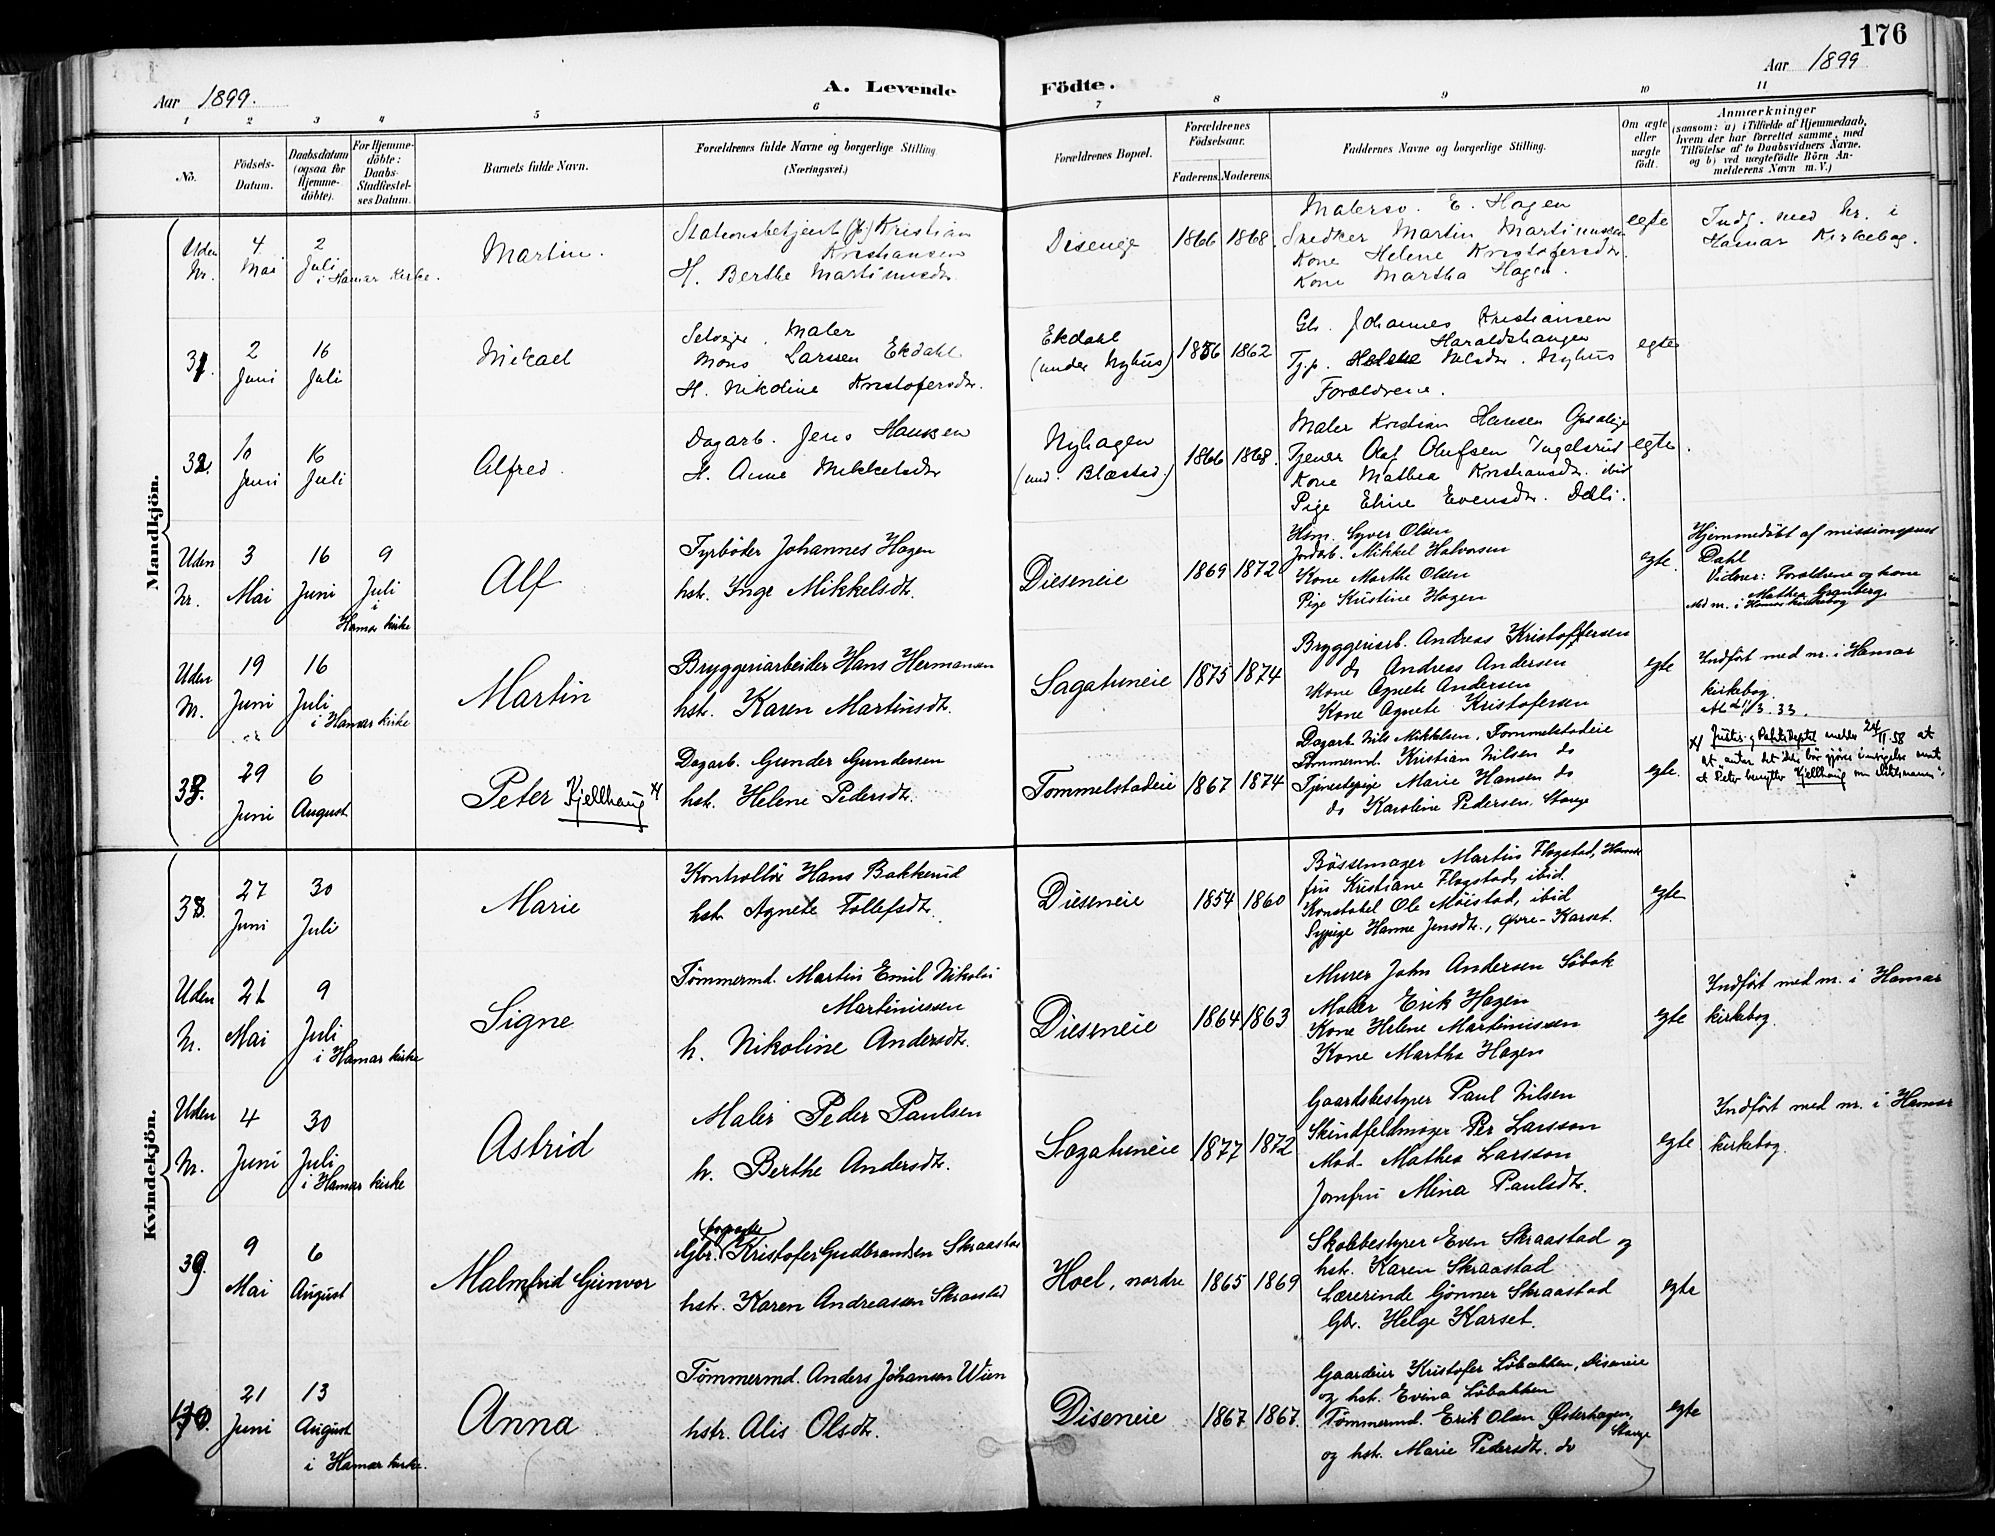 176
Aar 1899.
A. Levende Födte.
Aar 1899
1 2 3 4 5 6 7 8 9 10 11
No.
Födsels-Datum.
Daabsdatum (ogsaa for Hjemme-döbte).
For Hjemme-döbte: Daabs-Stadfæstel-ses Datum.
Barnets fulde Navn.
Forældrenes fulde Navne og borgerlige Stilling
(Næringsvei.)
Forældrenes Bopæl.
Forældrenes Födselsaar.
Faderens. Moderens.
Faddernes Navne og borgerlige Stilling.
Om ægte eller uægte födt.
Anmærkninger
(saasom: a) i Tilfælde af Hjemmedaab, hvem der har forrettet samme, med Tilföielse af to Daabsvidners Navne. og b) ved uægtefödte Börn An-melderens Navn m. V.)
Mandkjön.
Uden Nr.
4 Mai
2 Juli
i Hamar Kirke.
Martin.
Stationsbetjent Kristian
Kristiansen
H. Berthe Martinusdr.
Diseneie
1866 1868.
Malersv. E. Hagen
Snedker Martin Martinussen
Kone Helene Kristofersdr.
Kone Martha Hagen.
egte
Indf. med Nr. i
Hamar Kirkebog.
31.
2 Juni
16 Juli
Mikael
Selveier, Maler
Mons Larssen Ekdahl
H. Nikoline Kristofersdr.
Ekdahl
(under Nyhus)
1856 1862
Gb. Johannes Kristiansen
Haraldshaugen
Tj.p. Helene Nilsdr. Nyhus
Forældrene.
egte
32.
10 Juni
16 Juli
Alfred.
Dagarb. Jens Hansen
H. Anne Mikkelsdr
Nyhagen
(und. Blæstad)
1866 1868.
Maler Kristian Hansen
Tjener Olaf Olufsen Ingelsrud
Kone Mathea Kristiansdr. ibid
Pige Eline Evensdr. Deli.
egte.
Uden Nr.
3 Mai
16 Juni
9 Juli
i
Hamar kirke
Alf
Fyrböder Johannes Hagen
hst. Inge Mikkelsdt.
Dieseneie
1869 1872
Hsm. Syver Olsen
Jordarb. Mikkel Halvorsen
Kone Marthe Olsen
Pige Kristine Hagen
egte.
Hjemmedöbt af missionsprest
Dahl
Vidner: Forældrene og kone
Mathea Granberg
Med nr. i Hamar kirkebog
Uden Nr.
19 Juni
16 Juli
i Hamar kirke
Martin
Bryggeriarbeider Hans Hermansen
hst. Karen Martinsdt.
Sagatuneie
1875 1874
Bryggeriarb. Andreas Kristoffersen
do Andreas Andersen
Kone Agnete Andersen
Kone Agnete Kristofersen
egte
Indfört med nr. i Hamar
kirkebog.
At. d 11/3. 33.
33.
29 Juni
6 August
Peter Kjellhaug x)
Dagarb. Gunder Gundersen
hst. Helene Pedersdt.
Tommelstadeie
1867 1874
Dagarb. Nils Mikkelsen, Tommelstadeie
Tömmermd. Kristian Nilsen do
Tjenestepige Marie Hansen do
do Karoline Pedersen, Stange
egte.
x) Justis- og Politideptet melder 24/11.58 at
at Peter benytter Kjellhaug som slektsnavn".
Kvindekjön.
38.
27 Juni
30 Juli
Marie
Kontrollör Hans Bakkerud
hst. Agnete Tollefsdt.
Dieseneie
1854 1860
Bössemager Martin Flagstad, Hamar
fru Kristiane Flagstad, ibid.
Konstabel Ole Möistad, ibid
Sypige Hanne Jensdt., Øvre-Karset.
egte
Uden Nr.
21 Mai
9 Juli
i Hamar kirke
Signe
Tömmermd. Martin Emil Nikolai
Martinussen
h. Nikoline Andersdt.
Dieseneie
1864 1863
Murer John Andersen Söbak
Maler Erik Hagen
Kone Helene Martinussen
Kone Martha Hagen
egte
Indfört med nr. i Hamar
kirkebog.
Uden Nr.
4 Juni
30 Juli
i Hamar kirke
Astrid
Maler Peder Paulsen
h. Berthe Andersdt.
Sagatuneie
1877 1872
Gaardsbestyrer Paul Nilsen
Skindfeldmager Per Larsson
Mad. Mathea Larsson
Jomfru Mina Paulsdt.
egte
Indfört med nr. i Hamar
kirkebog.
39.
9 Mai
6 August
Malmfrid Gunvor
forpagter
Gbr. Kristofer Gudbrandsen Skraastad
hst. Karen Andreassen Skraastad
Hoel, nordre
1865 1869
Skolebestyrer Even Skraastad og
hst. Karen Skraastad
Lærerinde Gönner Skraastad
Gbr. Helge Karset.
egte
40.
21 Juni
13 August
i Hamar kirke.
Anna
Tömmermd. Anders Johansen Wien
hstr. Alis Olsdt.
Diseneie
1867 1867.
Gaardeier Kristofer Löbakken, Diseneie
og hst. Evina Löbakken
Tömmermd. Erik Olsen Østerhagen,
Stange
og hst. Marie Pedersdt. do
egte